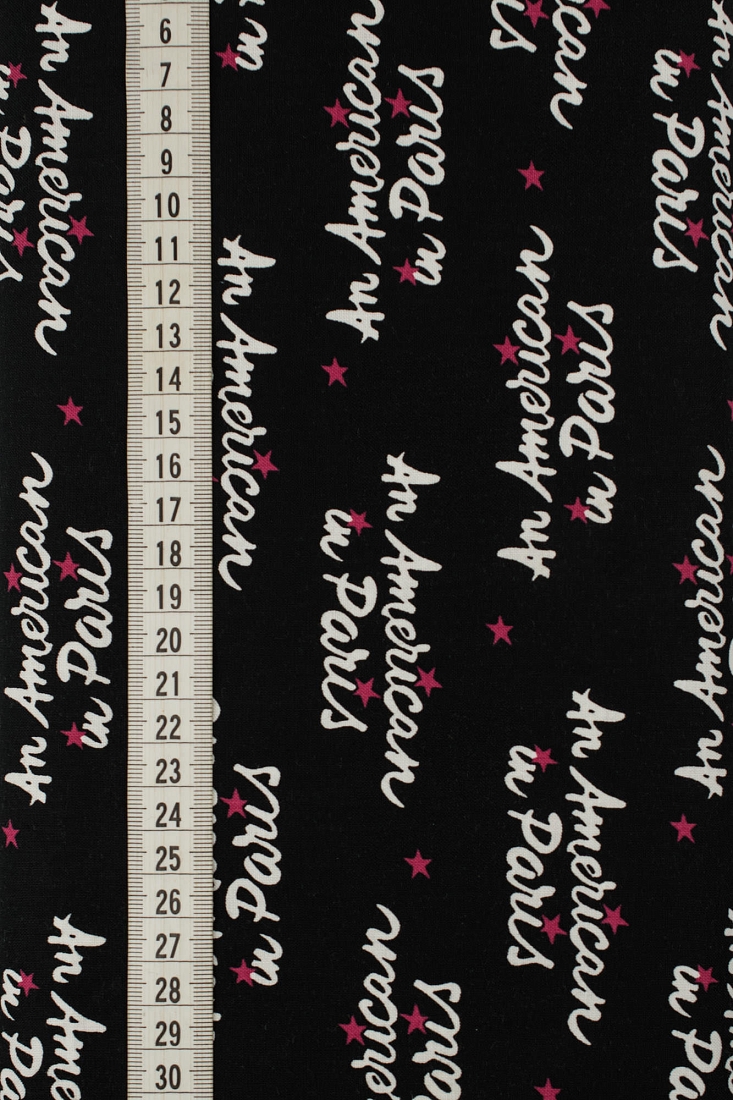 6
7
8
9
10
11
12
13
14
15
16
17
18
19
20
21
22
23
24
25
26
27
28
29
30
An American
in Paris
An American
in Paris
An American
in Paris
An American
An American
in Paris
An American
in Paris
in Paris
An American
in Paris
An American
in Paris
An American